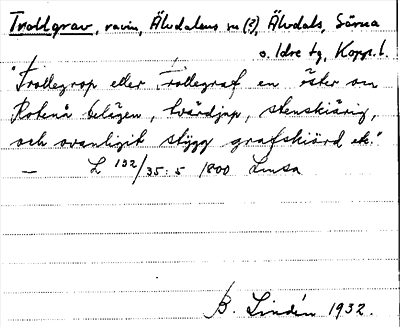 Trollgrav, ravin, Älvdalens sn (?), Älvdals, Särna
o. Idre tg, Kopp. l.
"Trollegrop eller Trollegraf en öster om
Rotenå belägen, tvärdjup, stenskiärig,
och ovanligit stygg grafskiörd etc."
— L 132/35:5 1800 Linsa
B. Lindén 1932.